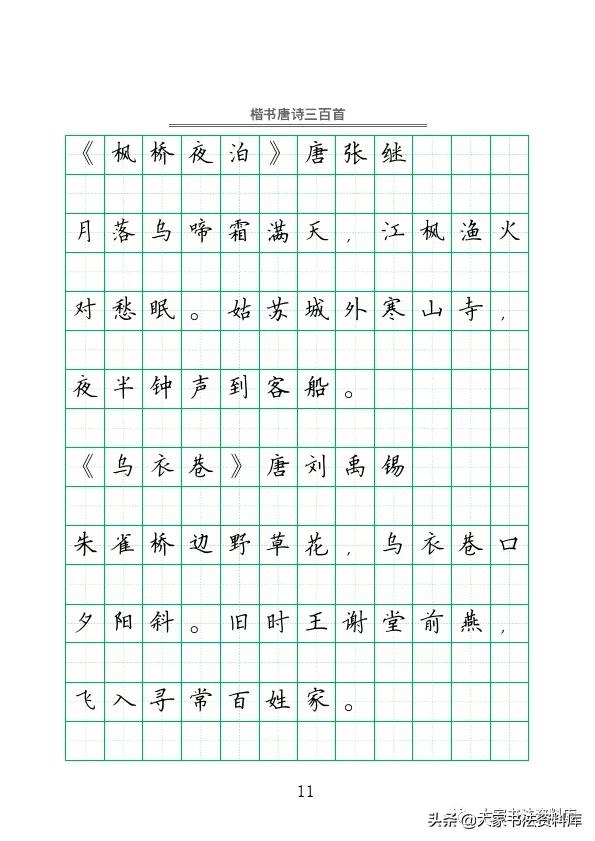 楷书唐诗三百首
《枫桥夜泊》唐张继
月落乌啼霜满天，江枫渔火
对愁眠。姑苏城外寒山寺，
夜半钟声到客船。
《乌衣巷》唐刘禹锡
朱雀桥边野草花，乌衣巷口
夕阳斜。旧时王谢堂前燕，
飞入寻常百姓家。
11
大家书法资料库
头条@大家书法资料库